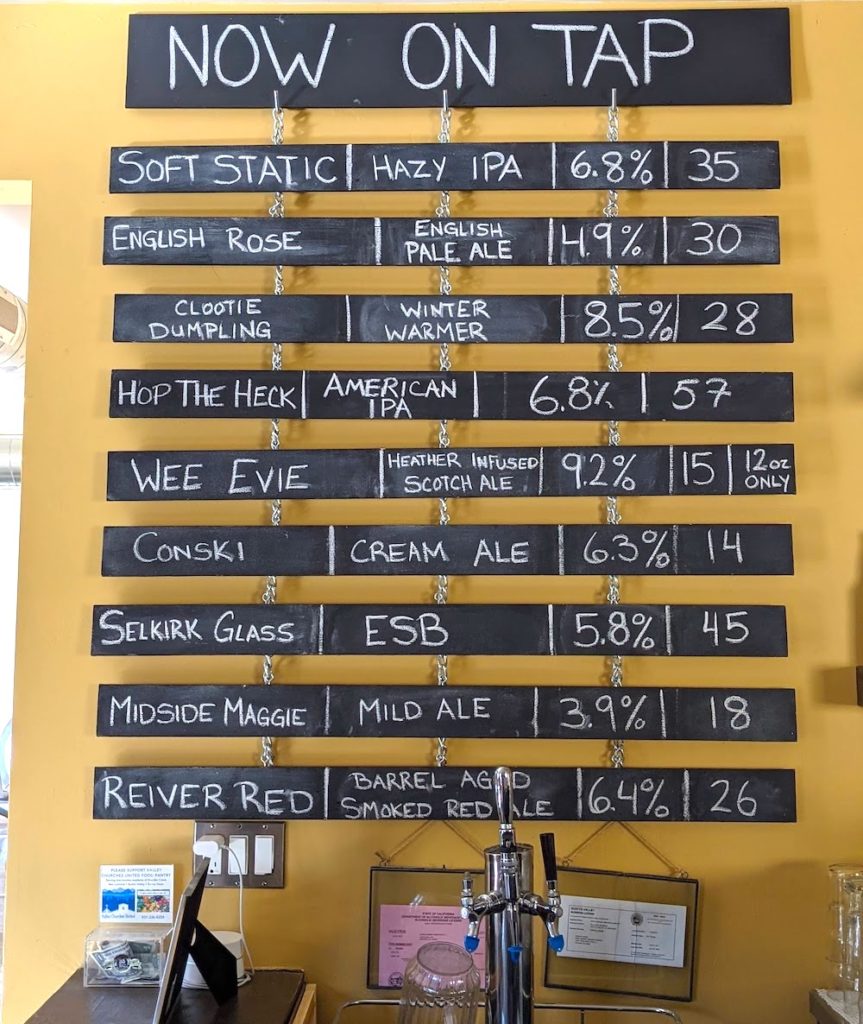 NOW ON TAP
SOFT STATIC | HAZY IPA | 6.8% | 35
ENGLISH ROSE | ENGLISH PALE ALE | 4.9% | 30
CLOOTIE DUMPLING | WINTER WARMER | 8.5% | 28
HOP THE HECK | AMERICAN IPA | 6.8% | 57
WEE EVIE | HEATHER INFUSED SCOTCH ALE | 9.2% | 15 | 12oz ONLY
CONSKI | CREAM ALE | 6.3% | 14
SELKIRK GLASS | ESB | 5.8% | 45
MIDSIDE MAGGIE | MILD ALE | 3.9% | 18
REIVER RED | BARREL AGED SMOKED RED ALE | 6.4% | 26
PLEASE SUPPORT VALLEY
CHURCHES UNITED FOOD PANTRY
STATE OF CALIFORNIA